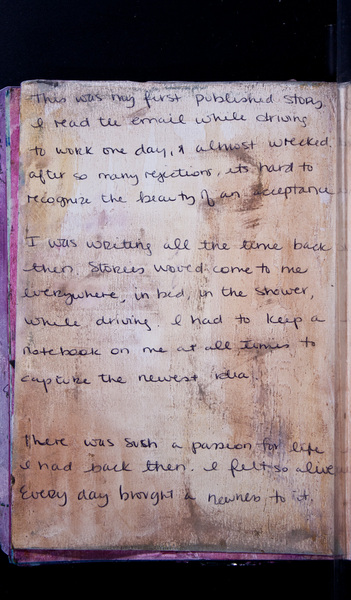 This was my first published story.
I read the email while driving
to work one day, & almost wrecked.
after so many rejections, its hard to
recognize the beauty of an acceptance
I was writing all the time back
then. Stories would come to me
everywhere, in bed, in the shower,
while driving. I had to keep a
notebook on me at all times to
capture the newest idea.
There was such a passion for life
I had back then. I felt so alive
Every day brought a newness to it.